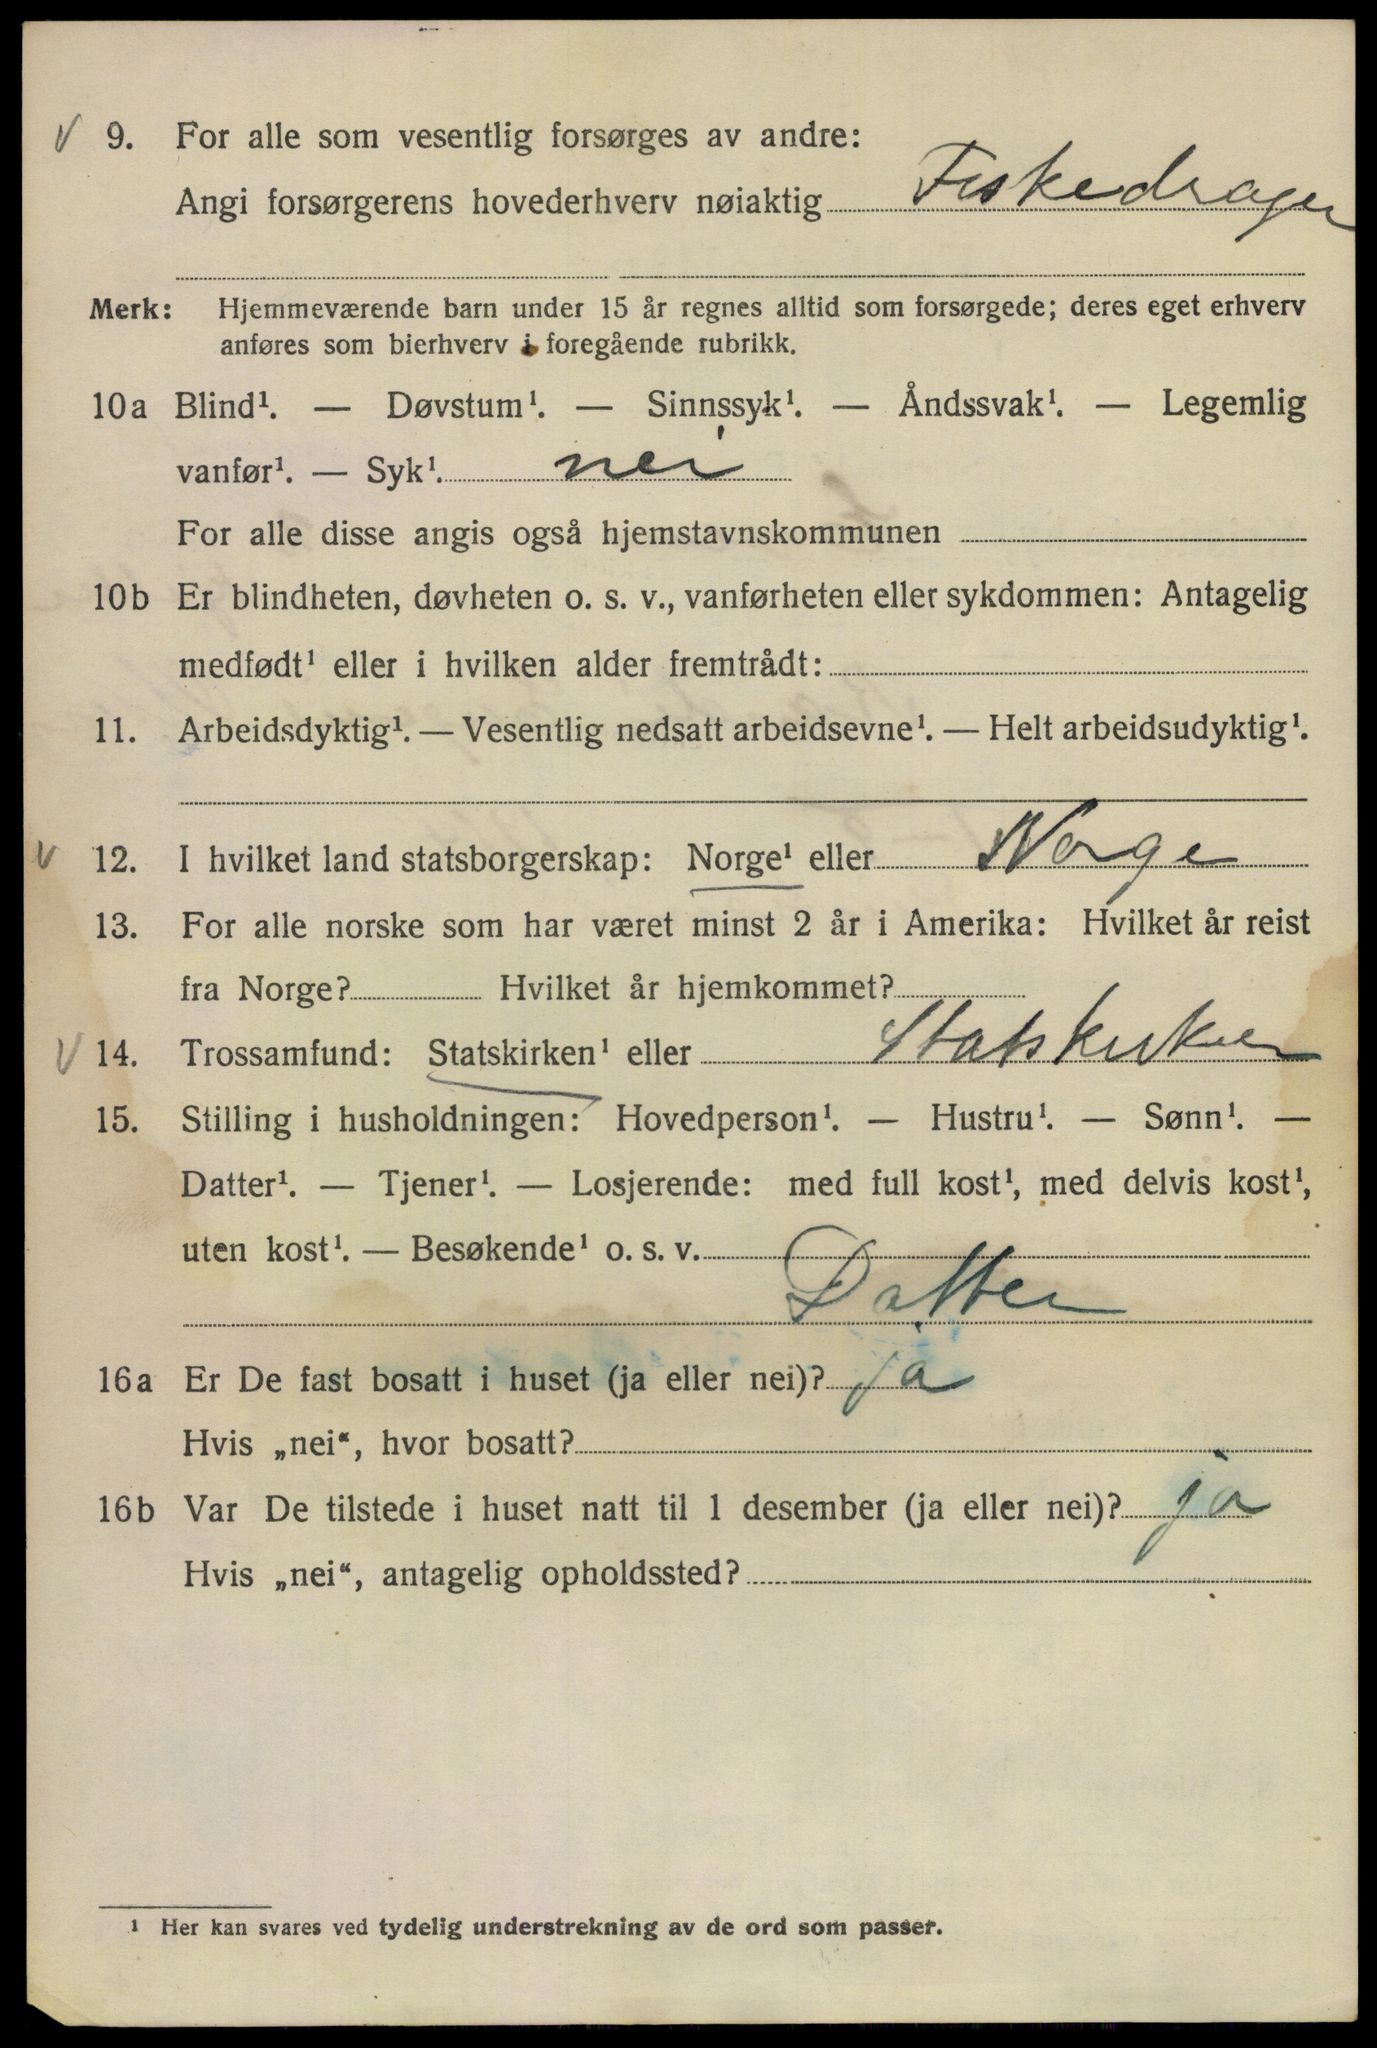 9. For alle som vesentlig forsørges av andre:
Angi forsørgerens hovederhverv nøiaktig Fiskedrager
Merk: Hjemmeværende barn under 15 år regnes alltid som forsørgede; deres eget erhverv
anføres som bierhverv i foregående rubrikk.
10a Blind¹. — Døvstum¹. — Sinnssyk¹. — Åndssvak¹. — Legemlig
vanfør¹. — Syk¹. nei
For alle disse angis også hjemstavnskommunen
10b Er blindheten, døvheten o. s. v., vanførheten eller sykdommen: Antagelig
medfødt¹ eller i hvilken alder fremtrådt:
11. Arbeidsdyktig¹. — Vesentlig nedsatt arbeidsevne¹. — Helt arbeidsudyktig¹.
12. I hvilket land statsborgerskap: Norge¹ eller Norge
13. For alle norske som har været minst 2 år i Amerika: Hvilket år reist
fra Norge? Hvilket år hjemkommet?
14. Trossamfund: Statskirken¹ eller Statskirken
15. Stilling i husholdningen: Hovedperson¹. — Hustru¹. — Sønn¹. —
Datter¹. — Tjener¹. — Losjerende: med full kost¹, med delvis kost¹,
uten kost¹. — Besøkende¹ o. s. v.
Datter
16a Er De fast bosatt i huset (ja eller nei)? ja
Hvis „nei“, hvor bosatt?
16b Var De tilstede i huset natt til 1 desember (ja eller nei)? ja
Hvis „nei“, antagelig opholdssted?
¹ Her kan svares ved tydelig understrekning av de ord som passer.